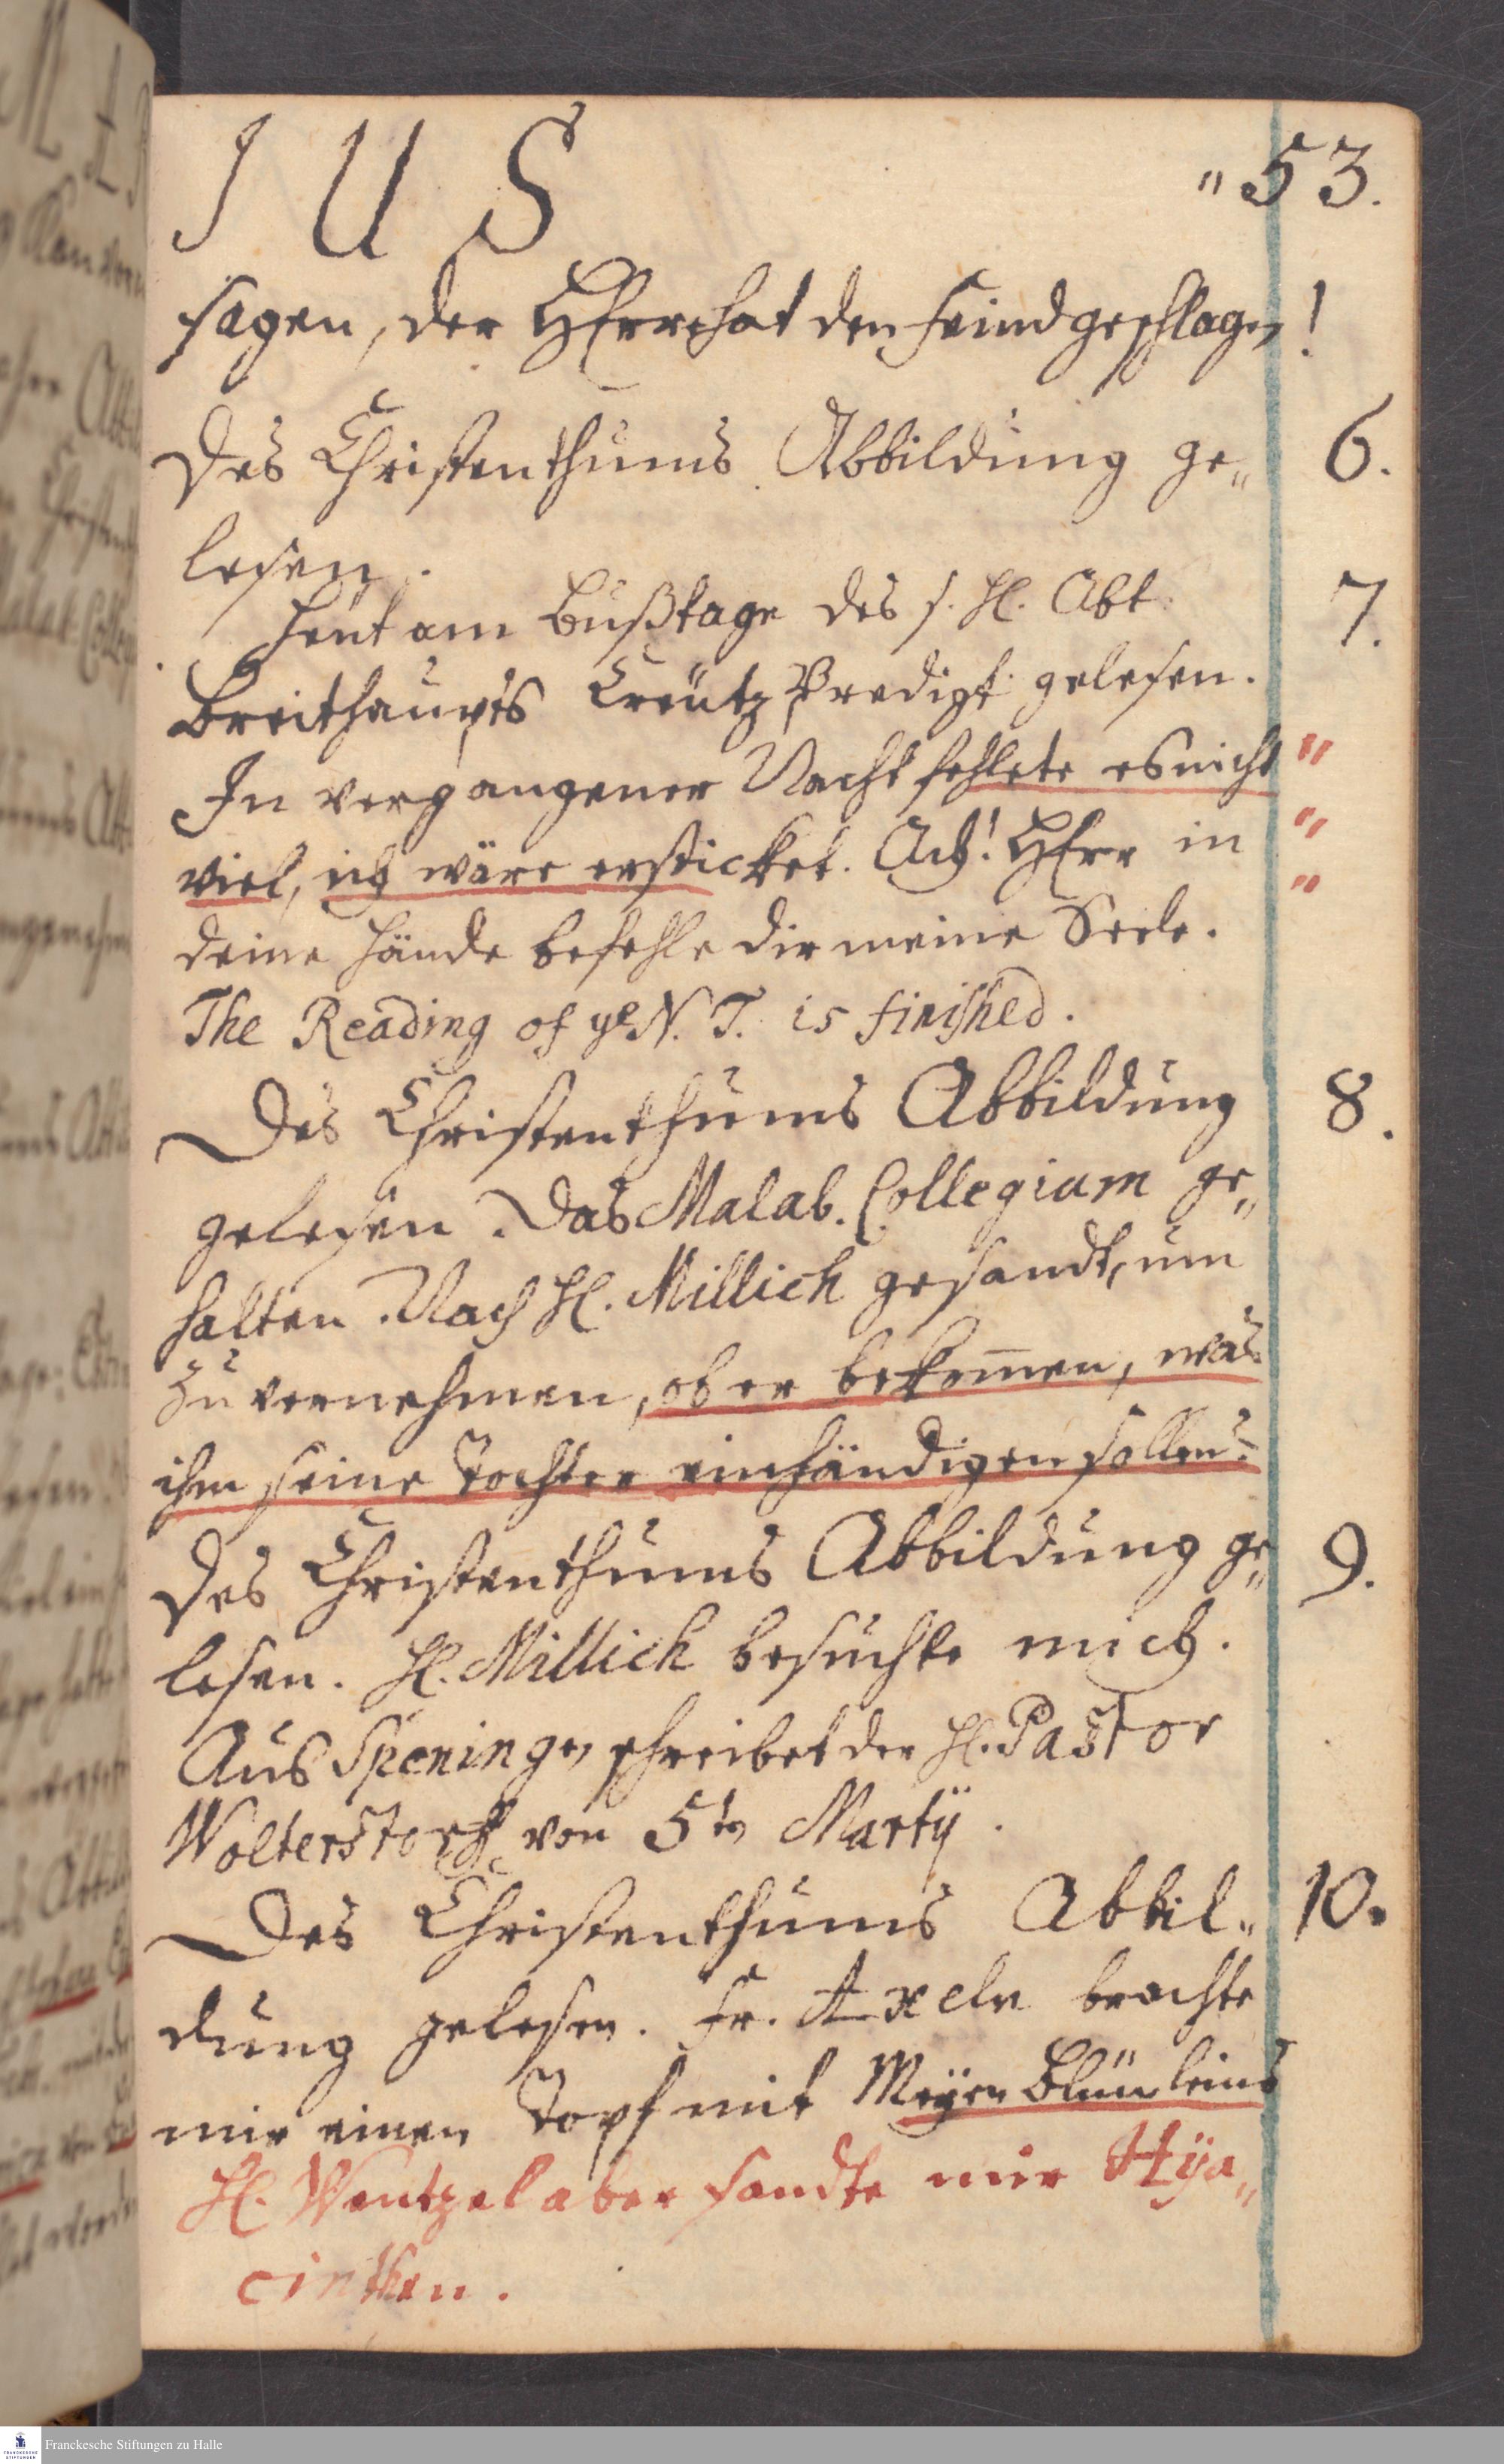 J U S
" 53.
sagen, der HErr hat den Feind geschlagen!
Des Christenthums Abbildung ge„ 6.
lesen.
Heut am Bußtage des s. H. Abt 7.
Breithaupts Creutz Predigt gelesen.
In vergangener Nacht fehlete es nicht "
viel, ich wäre ersticket. Ach! HErr in "
deine Hände befehle dir meine Seele. "
The Reading of ye N. T. is finished.
Des Christenthums Abbildung 8.
gelesen. Das Malab. Collegium ge„
halten. Nach H. Millich gesandt, um
zu vernehmen, ob er bekom̄en, was
ihm seine Tochter einhändigen sollen?
Des Christenthums Abbildung ge„ 9.
lesen. H. Millich besuchte mich.
Aus Speningen schreibet der H. Pastor
Wolterstorff von 5ten Martij.
Des Christenthums Abbil„ 10.
dung gelesen. Fr. Axeln brachte
mir einen Topf mit Meyen Blümleins
H. Wentzel aber sandte mir Hya„
cinthen.
Franckesche Stiftungen zu Halle